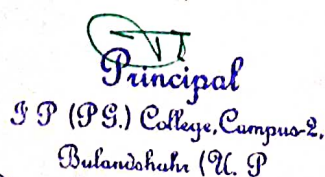 Principal
I P (P.G.) College, Campus-2,
Bulandshahr (U. P